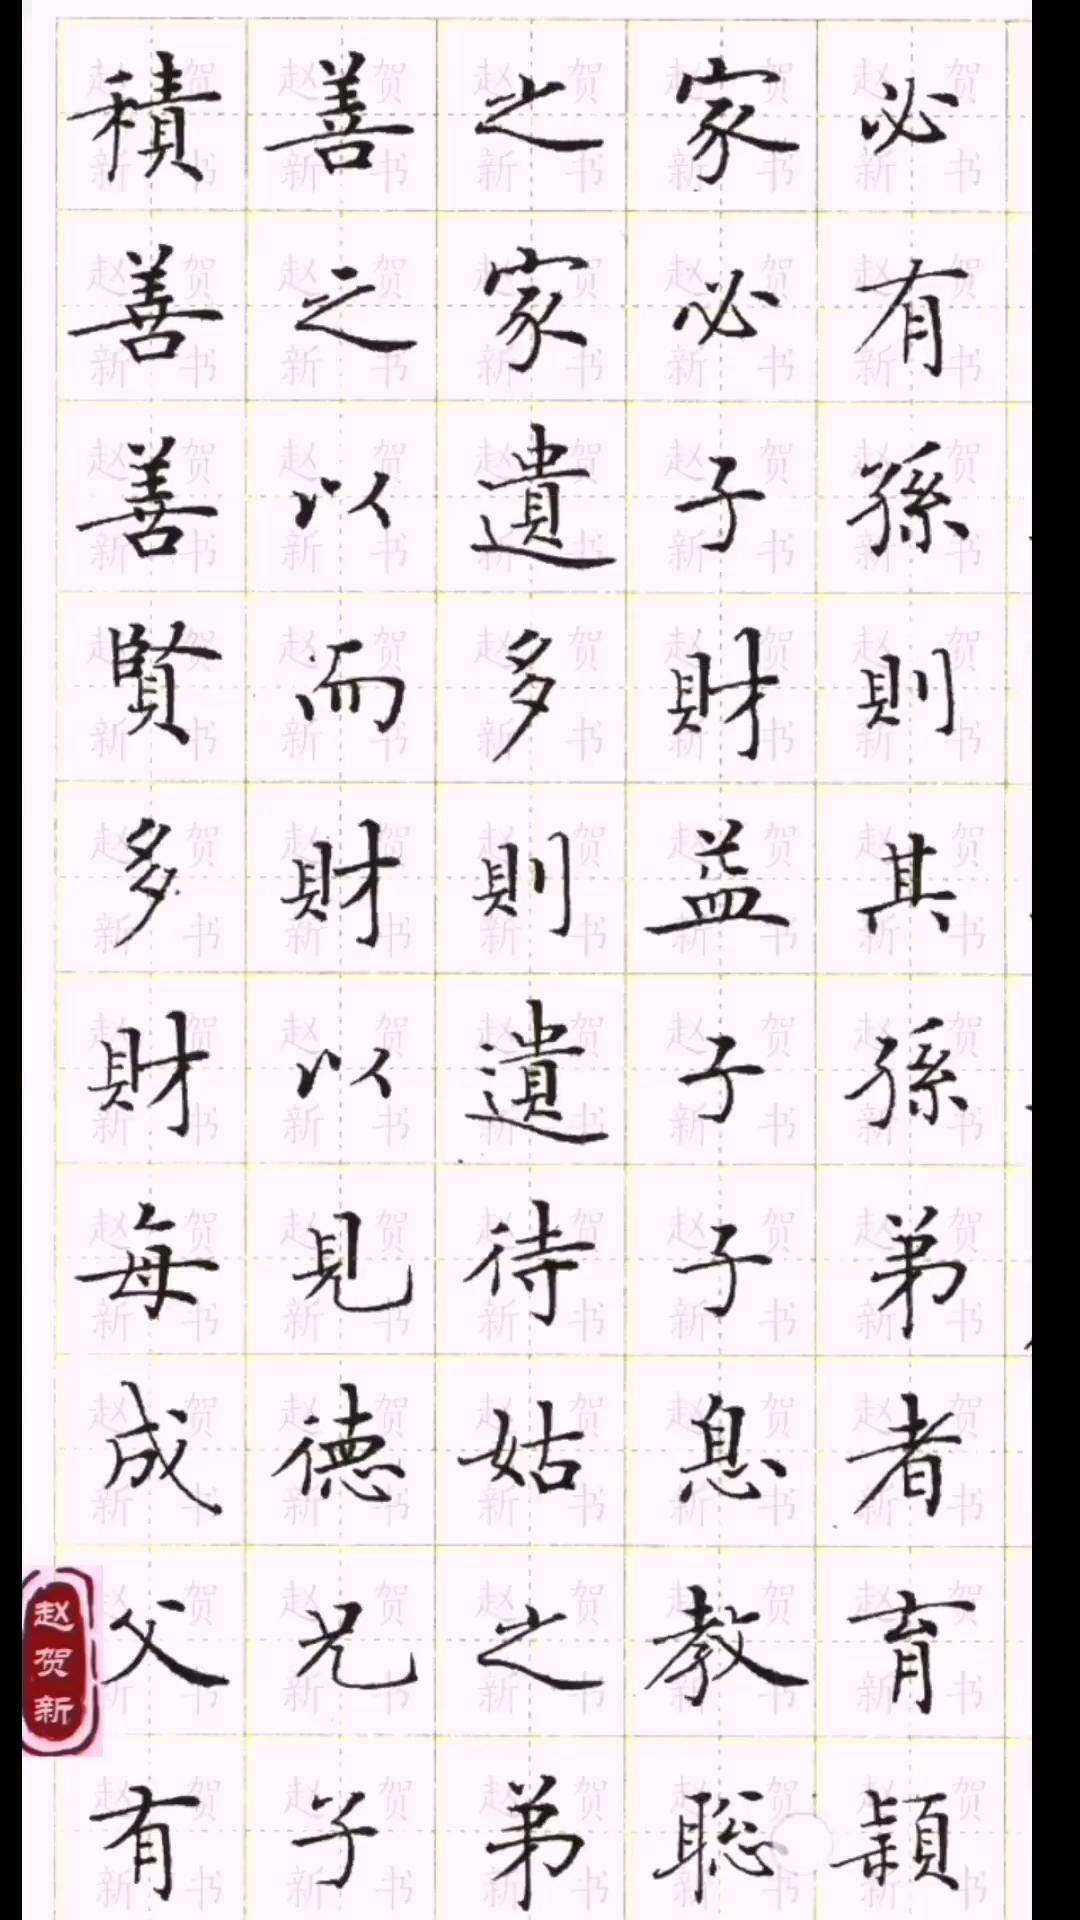 積善之家必
善之家必有
善以遺子孫
賢而多財則
多財則益其
財以遺子孫
每見待子弟
成德姑息者
父兄之教育
有子弟聡穎
赵贺新